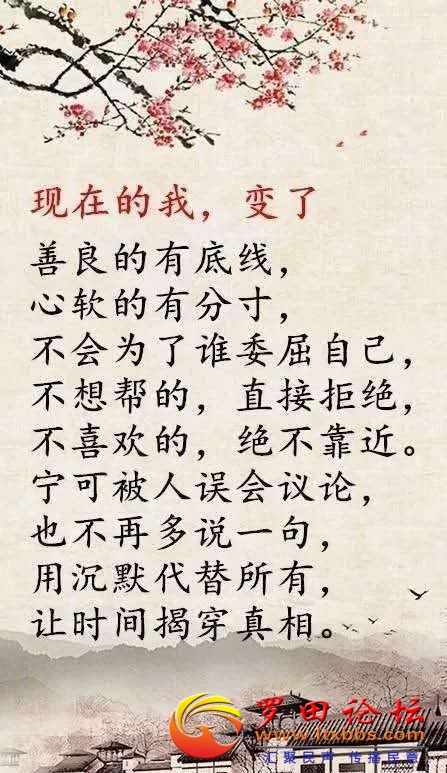 现在的我，变了
善良的有底线，
心软的有分寸，
不会为了谁委屈自己，
不想帮的，直接拒绝，
不喜欢的，绝不靠近。
宁可被人误会议论，
也不再多说一句，
用沉默代替所有，
让时间揭穿真相。
罗田论坛
www.ltxbbs.com
汇聚民声 传播民意